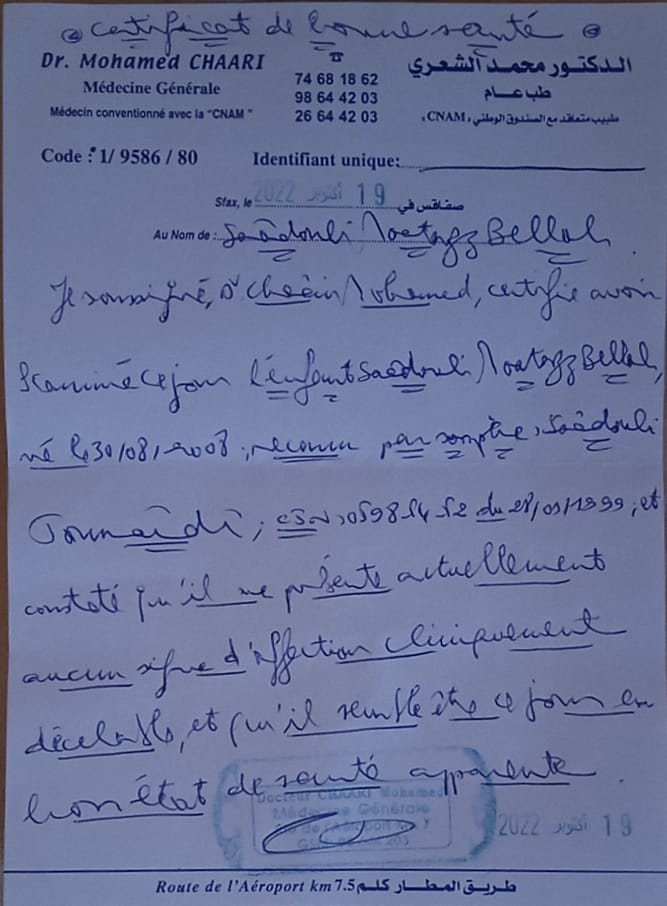 certificat de bonne santé
Dr. Mohamed CHAARI
Médecine Générale
Médecin conventionné avec la "CNAM"
74 68 18 62
98 64 42 03
26 64 42 03
الدكتور محمد الشعري
طب عام
طبيب متعاقد مع الصندوق الوطني «CNAM»
Code : 1/ 9586 / 80
Identifiant unique:
Sfax, le 2022 أكتوبر 19 صفاقس في
Au Nom de : Saâdouli Moetazz Bellah
Je soussigné, Dr Chaâri Mohamed, certifie avoir
examiné ce jour l'enfant Saâdouli Moetazz Bellah,
né le 30/08/2008, reconnu par son père, Saâdouli
du 28/09/1999, et
constaté qu'il ne présente actuellement
aucun signe d'affection cliniquement
décelable, et qu'il semble être ce jour en
bon état de santé apparente
Docteur CHAARI Mohamed
Médecine Générale
de l'Aéroport Km 7
2022 أكتوبر 19
Route de l'Aéroport km 7.5 طريق المطار كلم